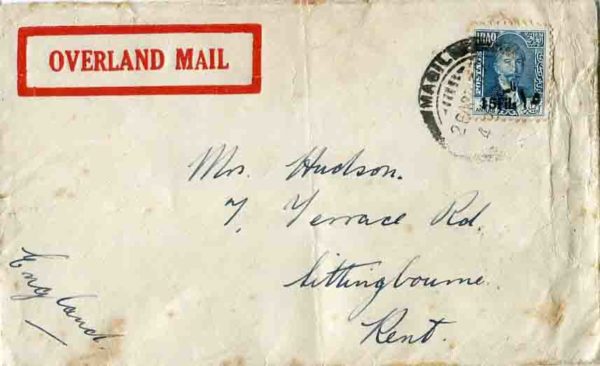 OVERLAND MAIL
IRAQ
MAGIL
15 Fils ١٥
Mrs. Hudson.
7, Terrace Rd.
Sittingbourne.
Kent.
England.